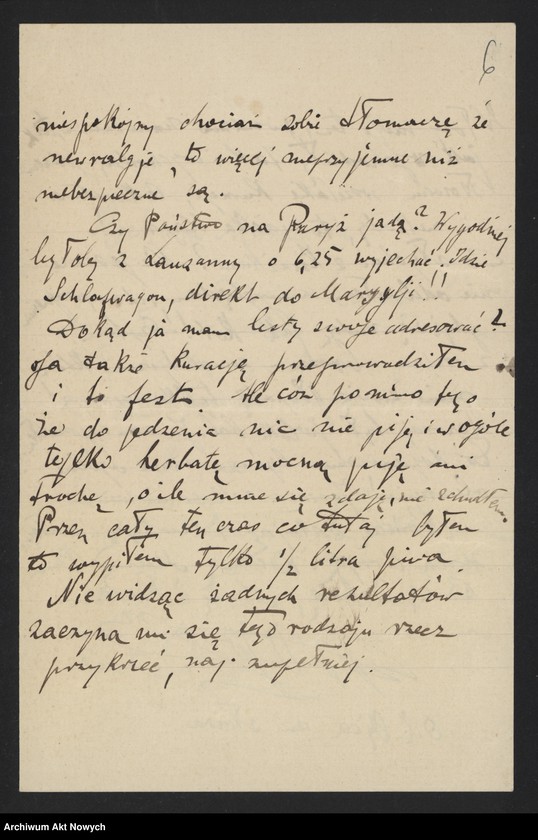 6
niespokojny chociaż sobie tłomaczę że
newralgje, to więcej nieprzyjemne niż
niebezpieczne są.
Czy Państwo na Paryż jadą? Wygodniej
byłoby z Lauzanny o 6,25 wyjechać. Idzie
Schlafwagon, direkt do Marsylji!!
Dokąd ja mam listy swoje adresować?
Ja także kurację przeprowadziłem
i to fest. Ale cóż pomimo tego
że do jedzenia nic nie piję i wogóle
tylko herbatę mocną piję ani
trochę, o ile mnie się zdaje, nie
Przez cały ten czas co tutaj byłem
to wypiłem tylko 1/2 litra piwa.
Nie widząc żadnych rezultatów
zaczyna mi się tego rodzaju rzecz
przykrzeć, naj zupełniej.
Archiwum Akt Nowych